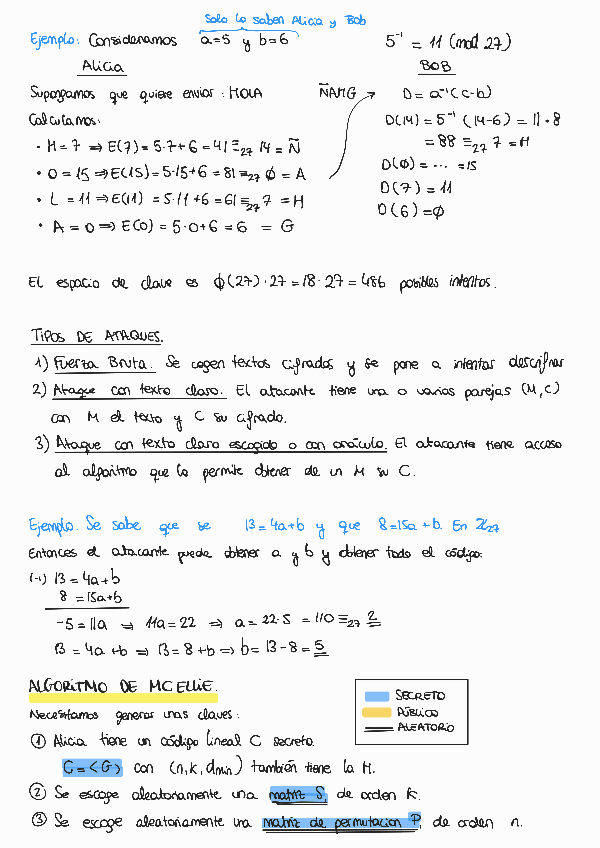 Solo lo saben Alicia y Bob
Ejemplo: Consideramos a=5 y b=6
5⁻¹ = 11 (mod 27)
Alicia
Supongamos que quiere enviar: HOLA
Calculamos:
· H = 7 ⇒ E(7) = 5·7+6 = 41 ≡₂₇ 14 = Ñ
· O = 15 ⇒ E(15) = 5·15+6 = 81 ≡₂₇ ϕ = A
· L = 11 ⇒ E(11) = 5·11+6 = 61 ≡₂₇ 7 = H
· A = 0 ⇒ E(0) = 5·0+6 = 6 = G
ÑAHG
BOB
D = a⁻¹(c-b)
D(14) = 5⁻¹ (14-6) = 11·8
= 88 ≡₂₇ 7 = H
D(ϕ) = ... = 15
D(7) = 11
D(6) = ϕ
El espacio de clave es ϕ(27)·27 = 18·27 = 486 posibles intentos.
TIPOS DE ATAQUES.
1) Fuerza Bruta. Se cogen textos cifrados y se pone a intentar descifrar
2) Ataque con texto claro. El atacante tiene una o varias parejas (M,C)
con M el texto y C su cifrado.
3) Ataque con texto claro escogido o con oráculo. El atacante tiene acceso
al algoritmo que le permite obtener de un M su C.
Ejemplo. Se sabe que se 13=4a+b y que 8=15a+b. En ℤ₂₇
Entonces el atacante puede obtener a y b y obtener todo el código:
(-1) 13 = 4a+b
8 = 15a+b
-5 = 11a ⇒ 11a = 22 ⇒ a = 22·5 = 110 ≡₂₇ 2
13 = 4a+b ⇒ 13 = 8+b ⇒ b = 13-8 = 5
ALGORITMO DE MC ELLIE.
SECRETO
PÚBLICO
ALEATORIO
Necesitamos generar unas claves:
① Alicia tiene un código lineal C secreto.
C = <G> con (n,k,dmin) también tiene la H.
② Se escoge aleatoriamente una matriz S, de orden k.
③ Se escoge aleatoriamente una matriz de permutacion P, de orden n.